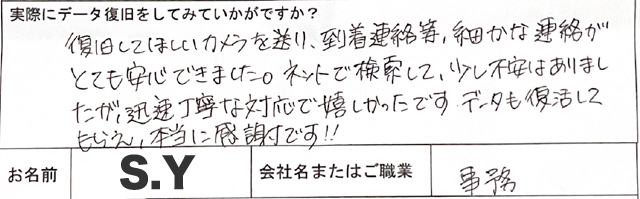 実際にデータ復旧をしてみていかがですか？
復旧してほしいカメラを送り、到着連絡等、細かな連絡が
とても安心できました。ネットで検索して、少し不安はありまし
たが、迅速丁寧な対応で嬉しかったです データも復活して
もらえ、本当に感謝です!!
お名前 S.Y 会社名またはご職業 事務